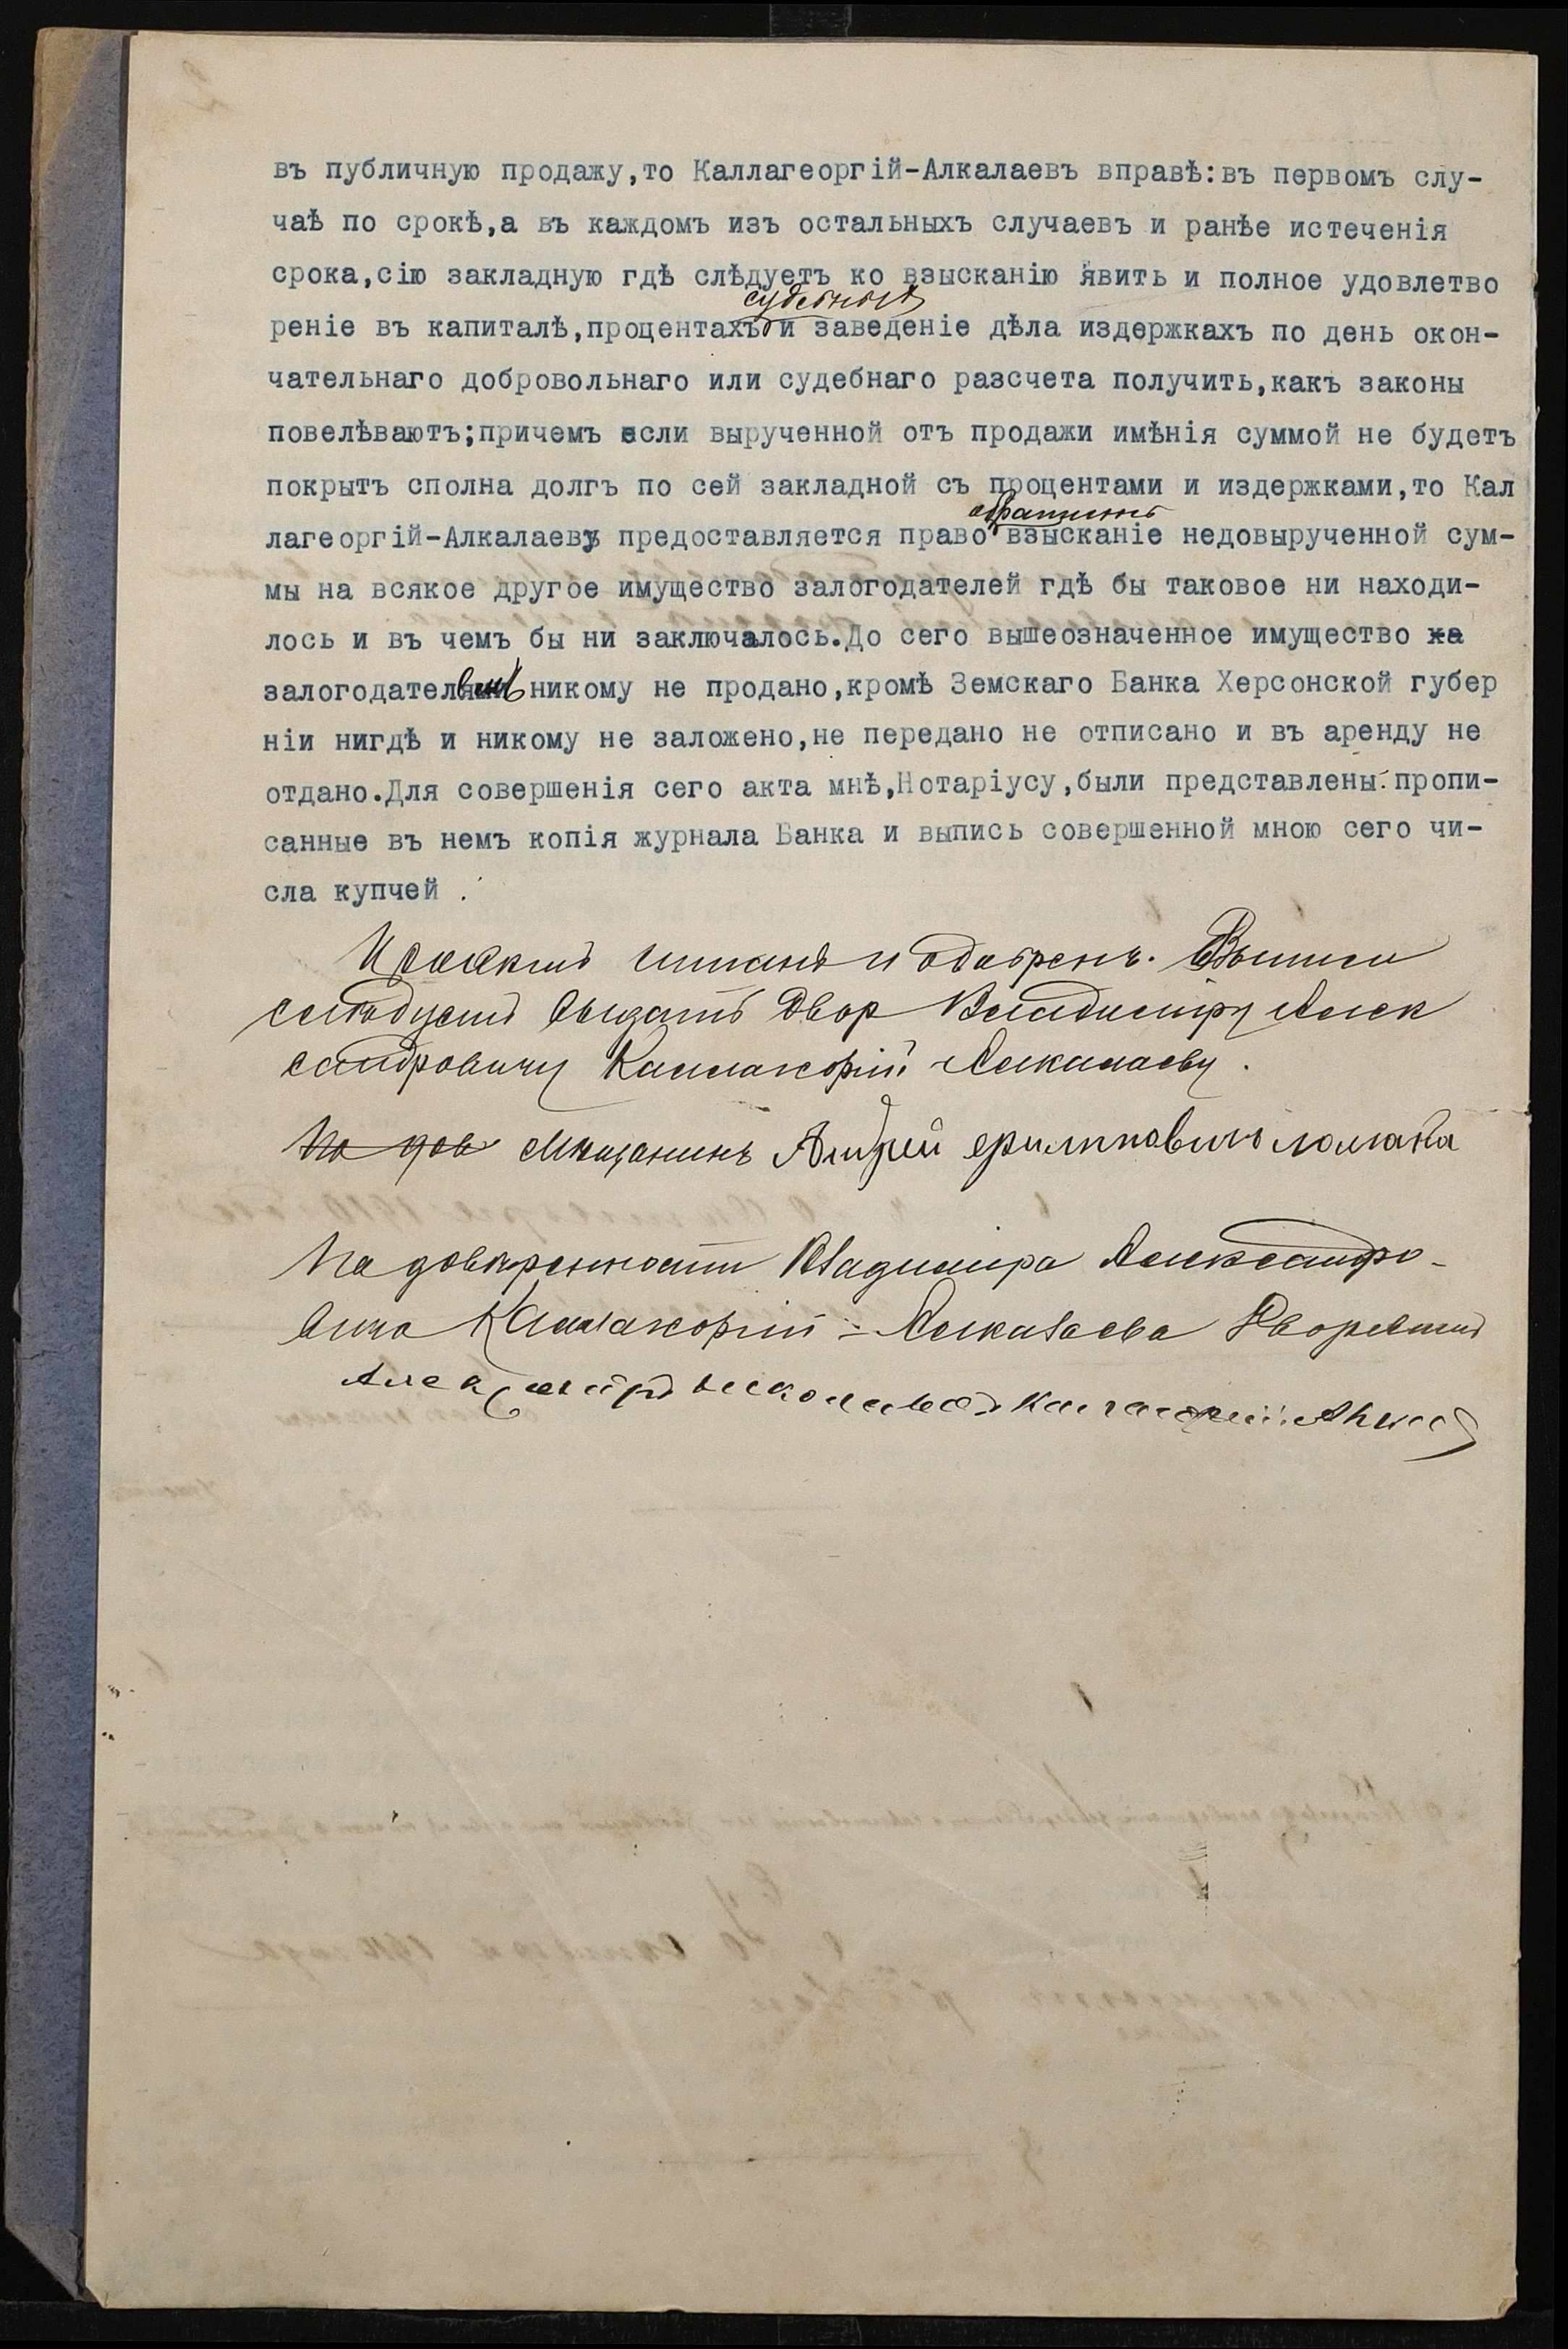 въ публичную продажу,то Каллагеоргій-Алкалаевъ вправѣ:въ первомъ слу-
чаѣ по срокѣ,а въ каждомъ изъ остальныхъ случаевъ и ранѣе истеченія
срока,сію закладную гдѣ слѣдуетъ ко взысканію явить и полное удовлетво
судебныхъ
реніе въ капиталѣ,процентахъ и заведеніе дѣла издержкахъ по день окон-
чательнаго добровольнаго или судебнаго разсчета получить,какъ законы
повелѣваютъ;причемъ если вырученной отъ продажи имѣнія суммой не будетъ
покрытъ сполна долгъ по сей закладной съ процентами и издержками,то Кал
обратить
лагеоргій-Алкалаеву предоставляется право взысканіе недовырученной сум-
мы на всякое другое имущество залогодателей гдѣ бы таковое ни находи-
лось и въ чемъ бы ни заключалось.До сего вышеозначенное имущество
никому не продано,кромѣ Земскаго Банка Херсонской губер
ніи нигдѣ и никому не заложено,не передано не отписано и въ аренду не
отдано.Для совершенія сего акта мнѣ,Нотаріусу,были представлены пропи-
санные въ немъ копія журнала Банка и выпись совершенной мною сего чи-
сла купчей .
Проектъ читанъ и одобренъ. Выпись
слѣдуетъ выдать Двор Владиміру Алек
сандровичу Каллагеоргій Алкалаеву.
По дов Мѣщанинъ Андрей Филипповичъ
По довѣренности Владиміра Александро-
вича Каллагеоргій-Алкалаева Дворянинъ
Александръ